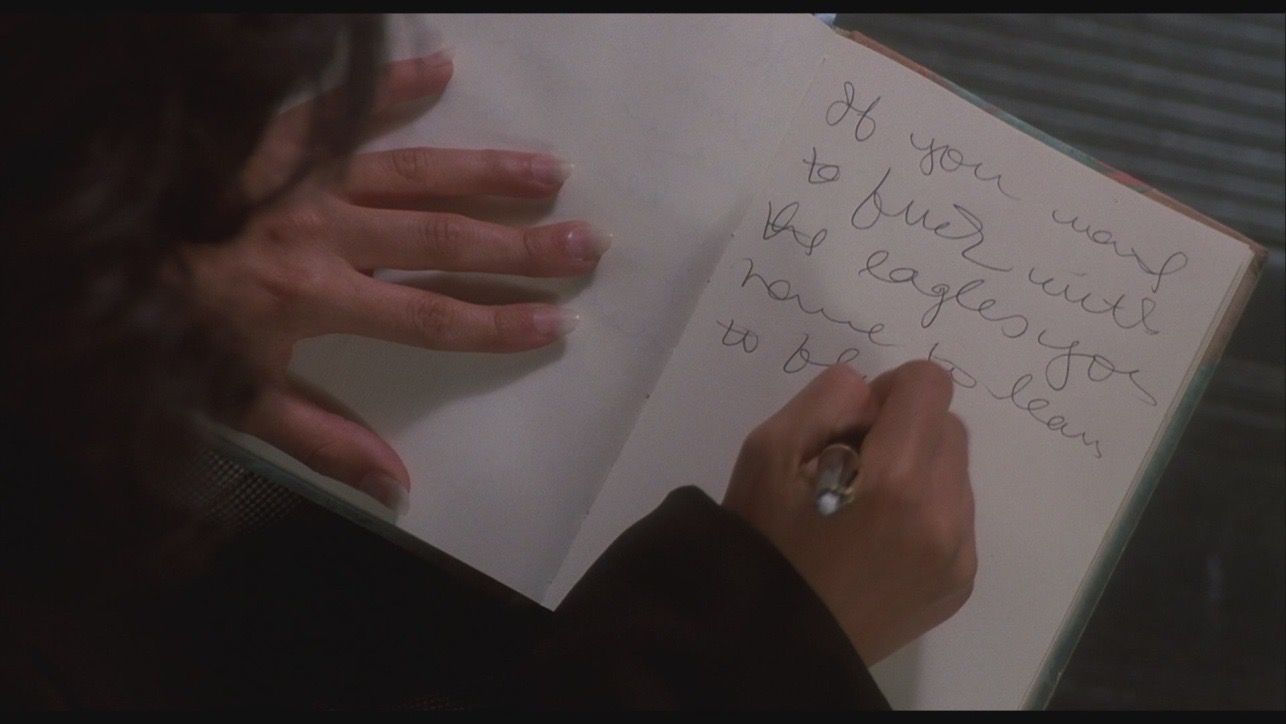 If you want
to fuck with
the eagles you
have to learn
to fl